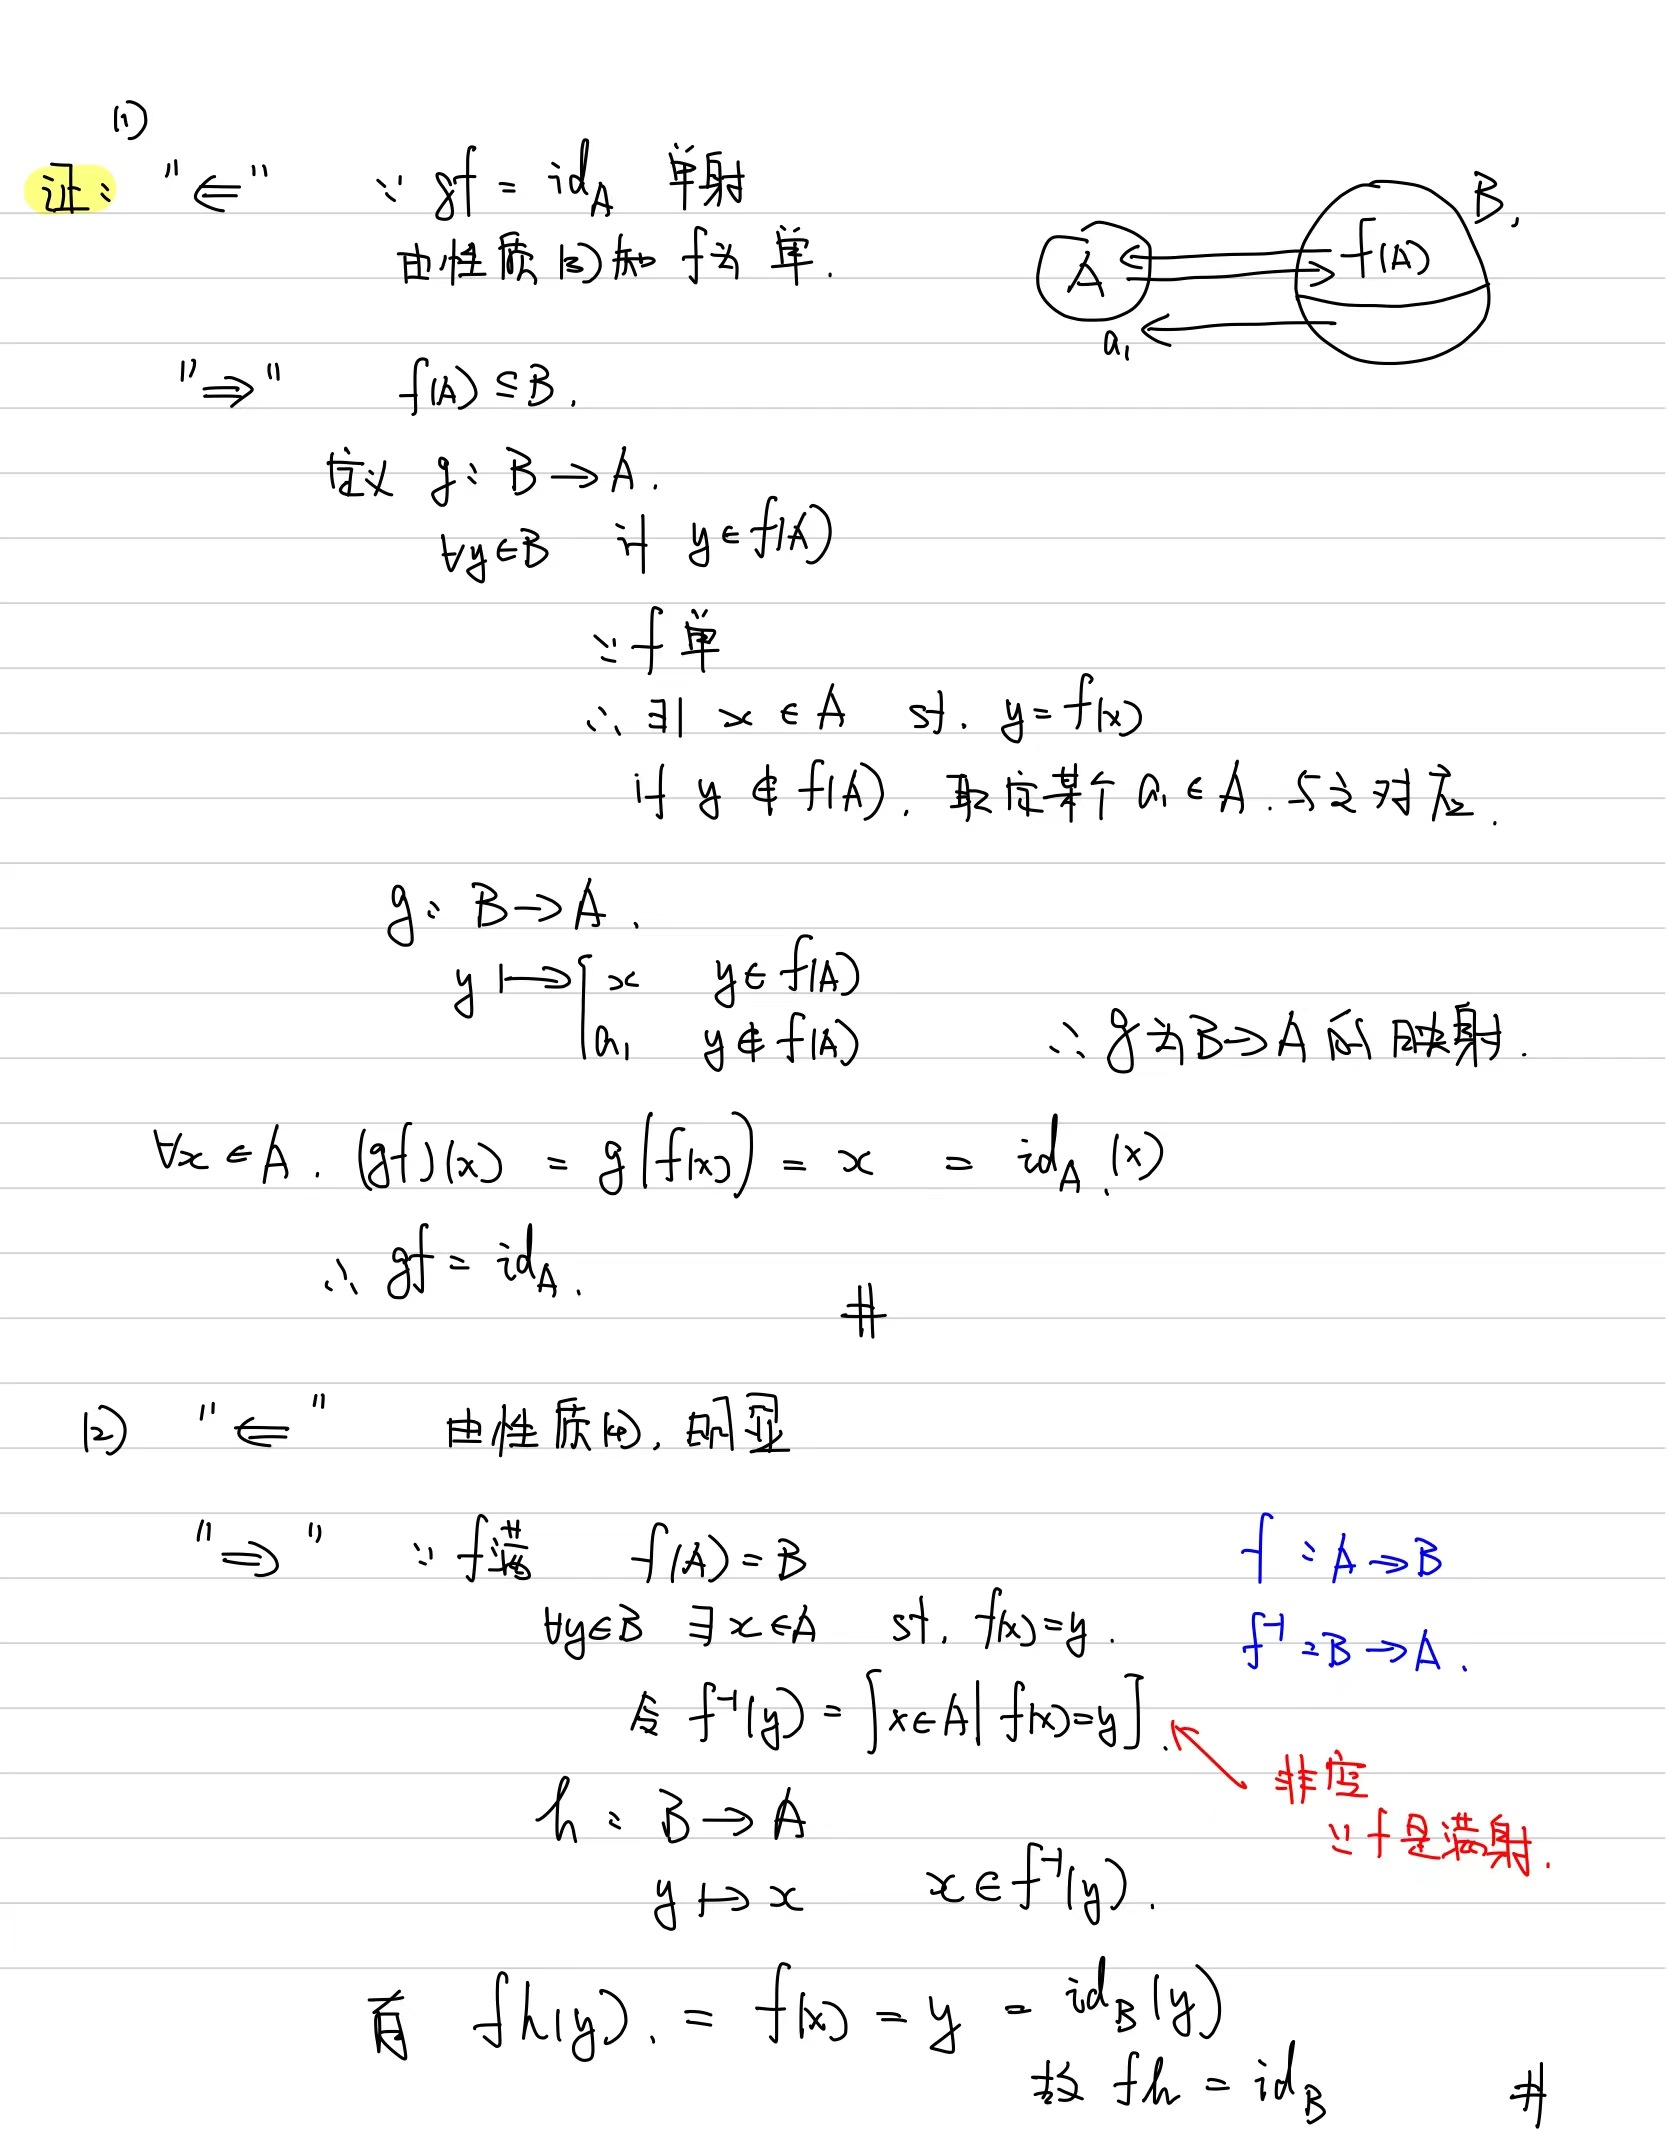 (1)
证: "⇐" ∵ gf = id_A 单射
由性质(3)知 f为单.
A f(A) B.
a₁
"⇒" f(A) ⊆ B.
定义 g: B → A.
∀y∈B if y∈f(A)
∵ f 单
∴ ∃| x ∈ A st. y = f(x)
if y ∉ f(A). 取定某个 a₁ ∈ A. 与之对应.
g: B → A.
y ↦ { x y∈f(A)
a₁ y∉f(A) ∴ g为B→A的映射.
∀x ∈ A. (gf)(x) = g(f(x)) = x = id_A.(x)
∴ gf = id_A.
#
(2) "⇐" 由性质(4), 明显
"⇒" ∵ f满 f(A) = B
∀y∈B ∃ x∈A st. f(x)=y.
令 f⁻¹(y) = [x∈A| f(x)=y].
h: B → A
y ↦ x x∈f⁻¹(y).
f: A → B
f⁻¹: B → A.
非空
∵ f是满射.
有 fh(y). = f(x) = y = id_B(y)
故 fh = id_B #